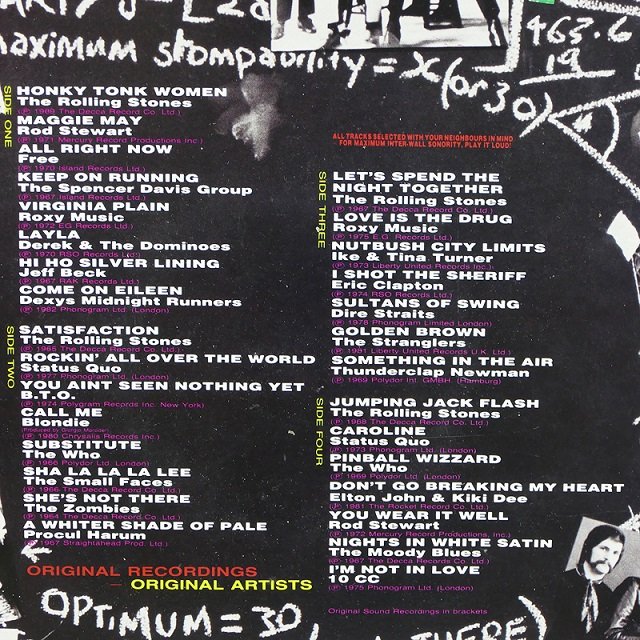 maximum stompability = x (or 30)
463.6
19
SIDE ONE
HONKY TONK WOMEN
The Rolling Stones
(P) 1969 The Decca Record Co. Ltd.)
MAGGIE MAY
Rod Stewart
(P) 1971 Mercury Record Productions Inc.)
ALL RIGHT NOW
Free
(P) 1970 Island Records Ltd.)
KEEP ON RUNNING
The Spencer Davis Group
(P) 1967 Island Records Ltd.)
VIRGINIA PLAIN
Roxy Music
(P) 1972 E.G. Records Ltd.)
LAYLA
Derek & The Dominoes
(P) 1970 RSO Records Ltd.)
HI HO SILVER LINING
Jeff Beck
(P) 1967 RAK Records Ltd.)
COME ON EILEEN
Dexys Midnight Runners
(P) 1982 Phonogram Ltd. (London)
SIDE TWO
SATISFACTION
The Rolling Stones
(P) 1965 The Decca Record Co. Ltd.)
ROCKING ALL OVER THE WORLD
Status Quo
(P) 1977 Phonogram Ltd. (London)
YOU AINT SEEN NOTHING YET
B.T.O.
(P) 1974 Polygram Records Inc. New York)
CALL ME
Blondie
(Produced by Giorgio Moroder)
(P) 1980 Chrysalis Records Inc.)
SUBSTITUTE
The Who
(P) 1966 Polydor Ltd. (London)
SHA LA LA LA LEE
The Small Faces
(P) 1966 The Decca Record Co. Ltd.)
SHE'S NOT THERE
The Zombies
(P) 1964 The Decca Record Co. Ltd.)
A WHITER SHADE OF PALE
Procul Harum
(P) 1967 Straightahead Prod. Ltd.)
ORIGINAL RECORDINGS
— ORIGINAL ARTISTS
ALL TRACKS SELECTED WITH YOUR NEIGHBOURS IN MIND
FOR MAXIMUM INTER-WALL SONORITY, PLAY IT LOUD!
SIDE THREE
LET'S SPEND THE
NIGHT TOGETHER
The Rolling Stones
(P) 1967 The Decca Record Co. Ltd.)
LOVE IS THE DRUG
Roxy Music
(P) 1975 E.G. Records Ltd.)
NUTBUSH CITY LIMITS
Ike & Tina Turner
(P) 1973 Liberty United Records Inc.)
I SHOT THE SHERIFF
Eric Clapton
(P) 1974 RSO Records Ltd.)
SULTANS OF SWING
Dire Straits
(P) 1978 Phonogram Limited London)
GOLDEN BROWN
The Stranglers
(P) 1981 Liberty United Records U.K. Ltd.)
SOMETHING IN THE AIR
Thunderclap Newman
(P) 1969 Polydor Int. GMBH. (Hamburg)
SIDE FOUR
JUMPING JACK FLASH
The Rolling Stones
(P) 1968 The Decca Record Co. Ltd.)
CAROLINE
Status Quo
(P) 1973 Phonogram Ltd. (London)
PINBALL WIZZARD
The Who
(P) 1969 Polydor Ltd. (London)
DON'T GO BREAKING MY HEART
Elton John & Kiki Dee
(P) 1981 The Rocket Record Co. Ltd.)
YOU WEAR IT WELL
Rod Stewart
(P) 1972 Mercury Record Productions, Inc.)
NIGHTS IN WHITE SATIN
The Moody Blues
(P) 1967 The Decca Record Co. Ltd.)
I'M NOT IN LOVE
10 CC
(P) 1975 Phonogram Ltd. (London)
Original Sound Recordings in brackets
OPTIMUM = 30,